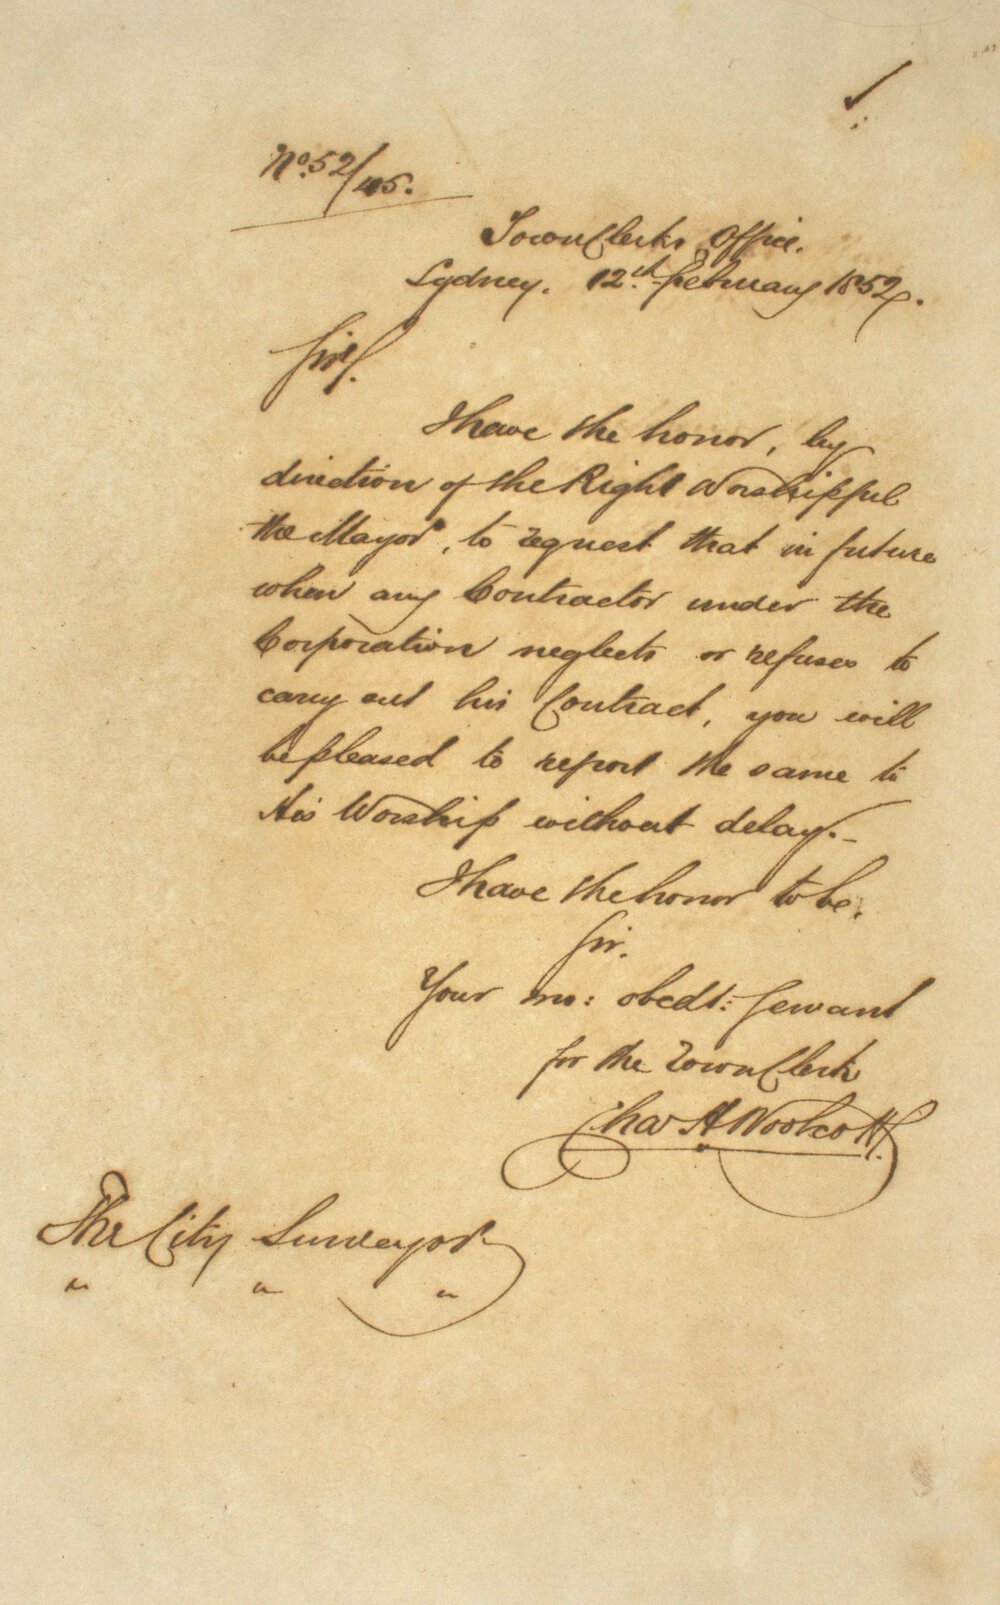 No. 52/45.
Town Clerks Office.
Sydney. 12th February 1852.
Sir,
I have the honor, by
direction of the Right Worshipful
the Mayor, to request that in future
when any Contractor under the
Corporation neglects or refuses to
carry out his Contract, you will
be pleased to report the same to
His Worship without delay.-
I have the honor to be,
Sir.
Your mo: obedt: Servant
for the Town Clerk
Chas H Woolcott.
The City Surveyor
" " "